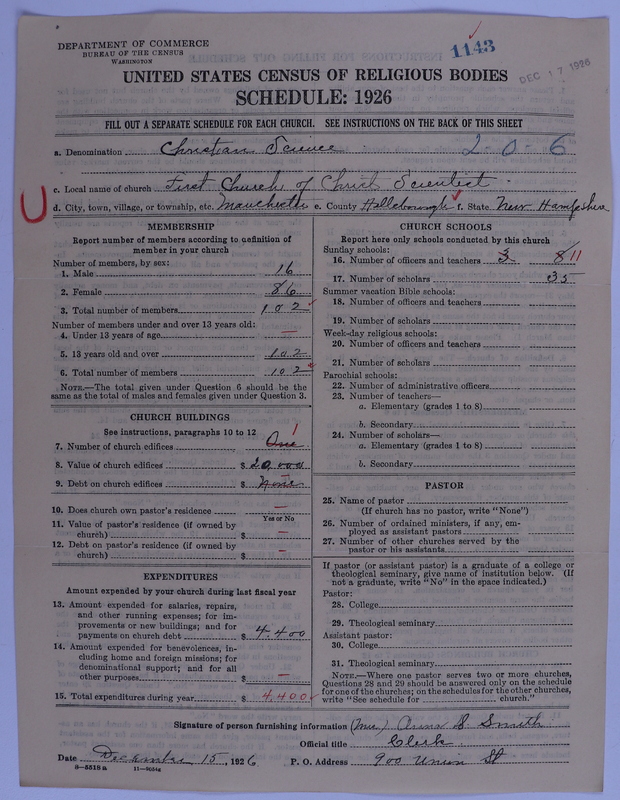 DEPARTMENT OF COMMERCE
BUREAU OF THE CENSUS
WASHINGTON
1143
DEC 17 1926
UNITED STATES CENSUS OF RELIGIOUS BODIES
SCHEDULE: 1926
FILL OUT A SEPARATE SCHEDULE FOR EACH CHURCH. SEE INSTRUCTIONS ON THE BACK OF THIS SHEET
a. Denomination Christian Science 2-0-6
c. Local name of church First Church of Christ Scientist
d. City, town, village, or township, etc. Manchester e. County Hillsborough f. State New Hampshire
MEMBERSHIP
Report number of members according to definition of
member in your church
Number of members, by sex:
1. Male 16
2. Female 86
3. Total number of members 102
Number of members under and over 13 years old:
4. Under 13 years of age —
5. 13 years old and over 102
6. Total number of members 102
NOTE.—The total given under Question 6 should be the
same as the total of males and females given under Question 3.
CHURCH BUILDINGS
See instructions, paragraphs 10 to 12
7. Number of church edifices One 1
8. Value of church edifices $ 20,000
9. Debt on church edifices $ None —
10. Does church own pastor's residence —
Yes or No
11. Value of pastor's residence (if owned by
church) $ —
12. Debt on pastor's residence (if owned by
church) $ —
EXPENDITURES
Amount expended by your church during last fiscal year
13. Amount expended for salaries, repairs,
and other running expenses; for im-
provements or new buildings; and for
payments on church debt $ 4,400
14. Amount expended for benevolences, in-
cluding home and foreign missions; for
denominational support; and for all
other purposes $ —
15. Total expenditures during year $ 4,400
CHURCH SCHOOLS
Report here only schools conducted by this church
Sunday schools:
16. Number of officers and teachers 3 8 11
17. Number of scholars 35
Summer vacation Bible schools:
18. Number of officers and teachers
19. Number of scholars
Week-day religious schools:
20. Number of officers and teachers
21. Number of scholars
Parochial schools:
22. Number of administrative officers
23. Number of teachers—
a. Elementary (grades 1 to 8)
b. Secondary
24. Number of scholars—
a. Elementary (grades 1 to 8)
b. Secondary
PASTOR
25. Name of pastor
(If church has no pastor, write "None")
26. Number of ordained ministers, if any, em-
ployed as assistant pastors
27. Number of other churches served by the
pastor or his assistants
If pastor (or assistant pastor) is a graduate of a college or
theological seminary, give name of institution below. (If
not a graduate, write "No" in the space indicated.)
Pastor:
28. College
29. Theological seminary
Assistant pastor:
30. College
31. Theological seminary
NOTE.—Where one pastor serves two or more churches,
Questions 28 and 29 should be answered only on the schedule
for one of the churches; on the schedules for the other churches,
write "See schedule for church."
Signature of person furnishing information (Mrs.) Anna S. Smith
Official title Clerk
Date December 15, 1926 P. O. Address 900 Union St
8-5518a 11-9034g